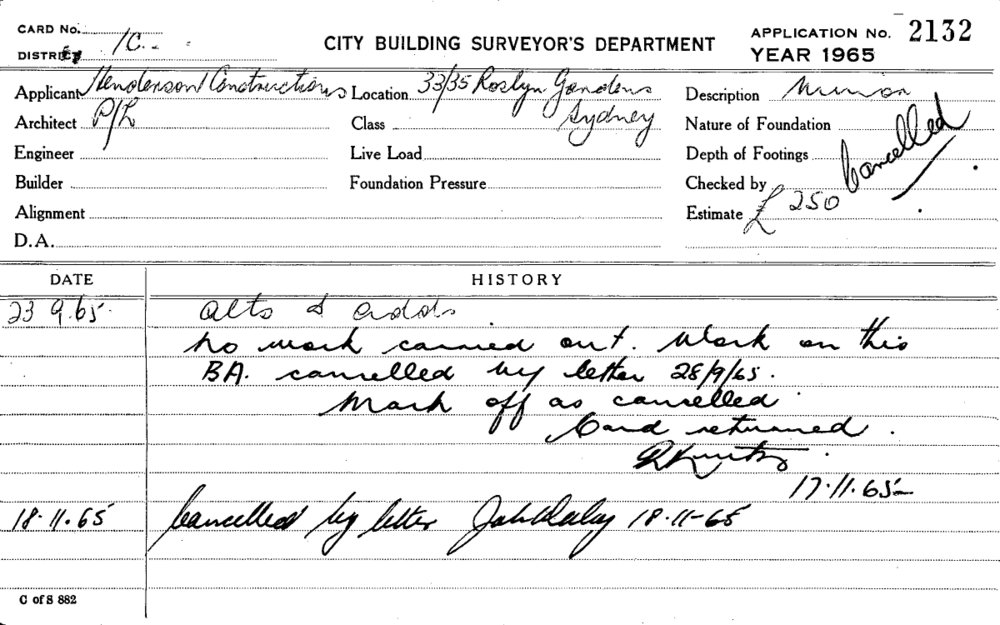 CARD No.
DISTRICT 1C.
CITY BUILDING SURVEYOR'S DEPARTMENT
APPLICATION No. 2132
YEAR 1965
Applicant Henderson Constructions
P/L
Location 33/35 Roslyn Gardens
Sydney
Description
Architect
Class
Nature of Foundation
Engineer
Live Load
Depth of Footings
Cancelled
Builder
Foundation Pressure
Checked by
Alignment
Estimate £ 250
D.A.
DATE HISTORY
23 9.65. alts & adds
No work carried out. Work on this
BA. cancelled by letter 28/9/65.
Mark off as cancelled.
Card returned.
17.11.65
18.11.65 Cancelled by letter 18-11-65
C of S 882